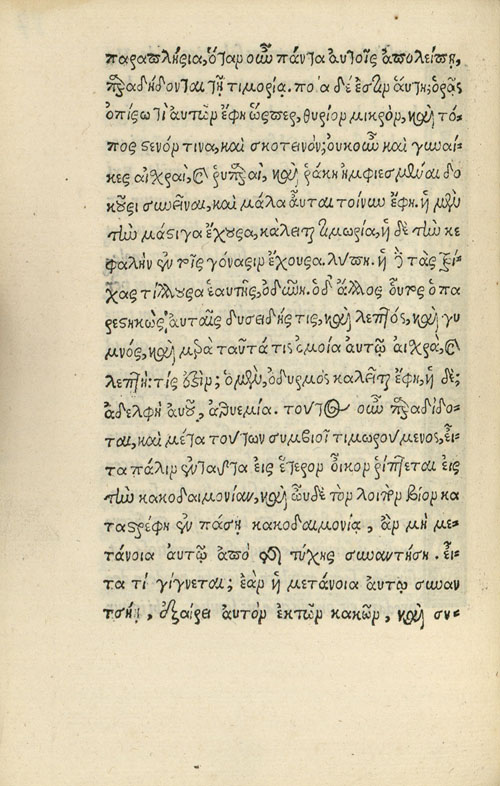 παραπλήσια, ὅταν οὖν πάντα αυτοῖς ἀπολείπῃ,
παραδήδονται τῇ τιμορία. πο ἀ δέ ἐστιν ἅυτη; ὁρᾷς
ὀπίσω τι αυτῶν ἔφη ὥσπερ, θυρίον μικρὸν, καὶ τό-
πος στενόν τινα, και σκοτεινόν; ουκοῦν και γυναί-
κες αἰχραὶ, καὶ ῥυπαραὶ, καὶ ῥάκη ἠμφιεσμέναι δο
κοῦσι συνεῖναι, και μάλα ἇυται τοίνυν ἔφη. ἡ μὲν
τὴν μάστιγα ἔχουσα, καλεῖται τιμωρία, ἡ δὲ τὴν κε
φαλὴν ἐν τοῖς γόνασιν ἔχουσα. λύπη. ἡ δὲ τὰς τρί
χας τίλλουσα ἑαυτῆς, ὀδύνη. ὁδ' ἄλλος οὗτος ὁ πα
ρεστηκὼς ἀυταῖς δυσειδής τις, καὶ λεπτός, καὶ γυ
μνός, καὶ μετὰ ταῦτά τις ὁμοία αὐτῷ αἰχρὰ, καὶ
λεπτὴ: τίς ἐστίν; ὁ μὲν, ὀδυρμος καλεῖται ἔφη, ἡ δέ;
ἀδελφὴ αυτοῦ, ἀθυεμία. τουτοις οὖν παραδίδο-
ται, και μέτα τουτων συμβιοῖ τιμορουμενος, εἶ-
τα πάλιν ἐνταῦτα εἰς ἕτερον ὂικον ῥίπτεται εἰς
τὴν κακοδαιμονίαν, καὶ ὧδε τὸν λοιπὸν βίον κα
ταστρέφη ἐν πάσῃ κακοδαιμονίᾳ, ἂν μὴ με-
τάνοια αυτῷ ἀπὸ τῆς τύχης συναντήσῃ. εἶ-
τα τί γίγνεται; ἐὰν ἡ μετάνοια ἀυτῳ συναν
τσῃ, ἐξαίρει αυτὸν ἐκτῶν κακῶν, καὶ συ-